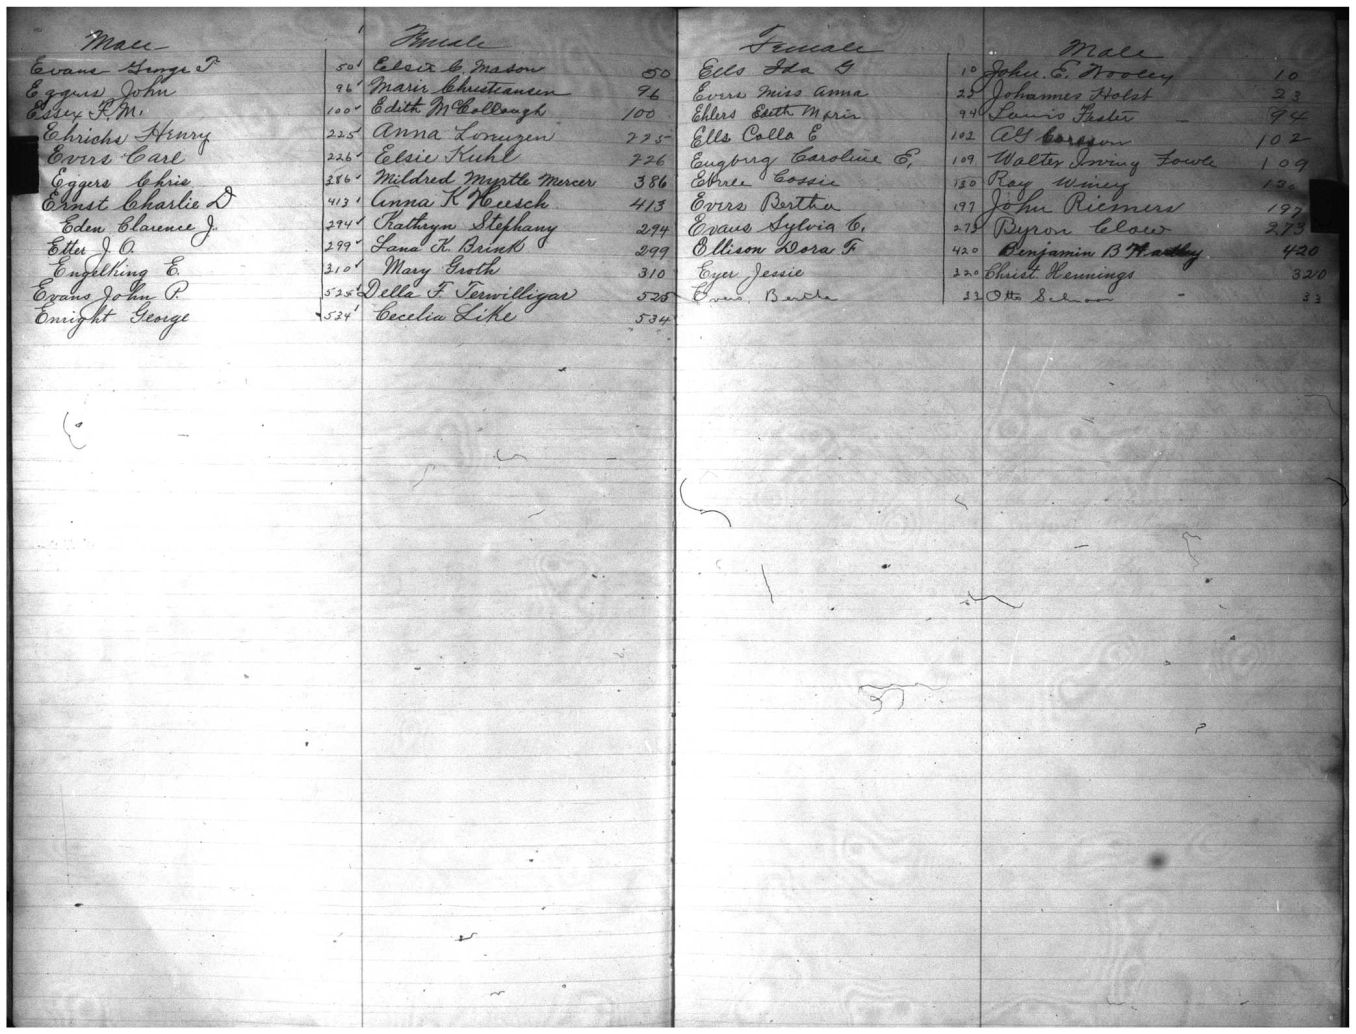 Male Female
Evans George T 50 Elsie C. Mason 50
Eggers John 96 Marie Christiansen 96
Essex F. M. 100 Edith McCollough 100
Ehrichs Henry 225 Anna Lorenzen 225
Evers Carl 226 Elsie Kuhl 226
Eggers Chris 386 Mildred Myrtle Mercer 386
Ernst Charlie D 413 Anna K Heesch 413
Eden Clarence J. 294 Kathryn Stephany 294
Etter J. O. 299 Lana K. Brink 299
Engelking E. 310 Mary Groth 310
Evans John P. 525 Della F. Terwilligar 525
Enright George 534 Cecelia Like 534
Female Male
Ells Ida G 10 John. E. Wooley 10
Evers Miss Anna 23 Johannes Holst 23
Ehlers Edith Marie 94 Louis 94
Ells Colla E 102 A G 102
Engburg Caroline E, 109 Walter Irving Fowle 109
Cossie 130 Ray Winey 130
Evers Bertha 197 John Riemers 197
Evans Sylvia C. 273 Byron Clow 273
Ellison Dora F 420 Benjamin B 420
Eyer Jessie 320 Christ Hennings 320
Evers Bertha 33 Otto 33